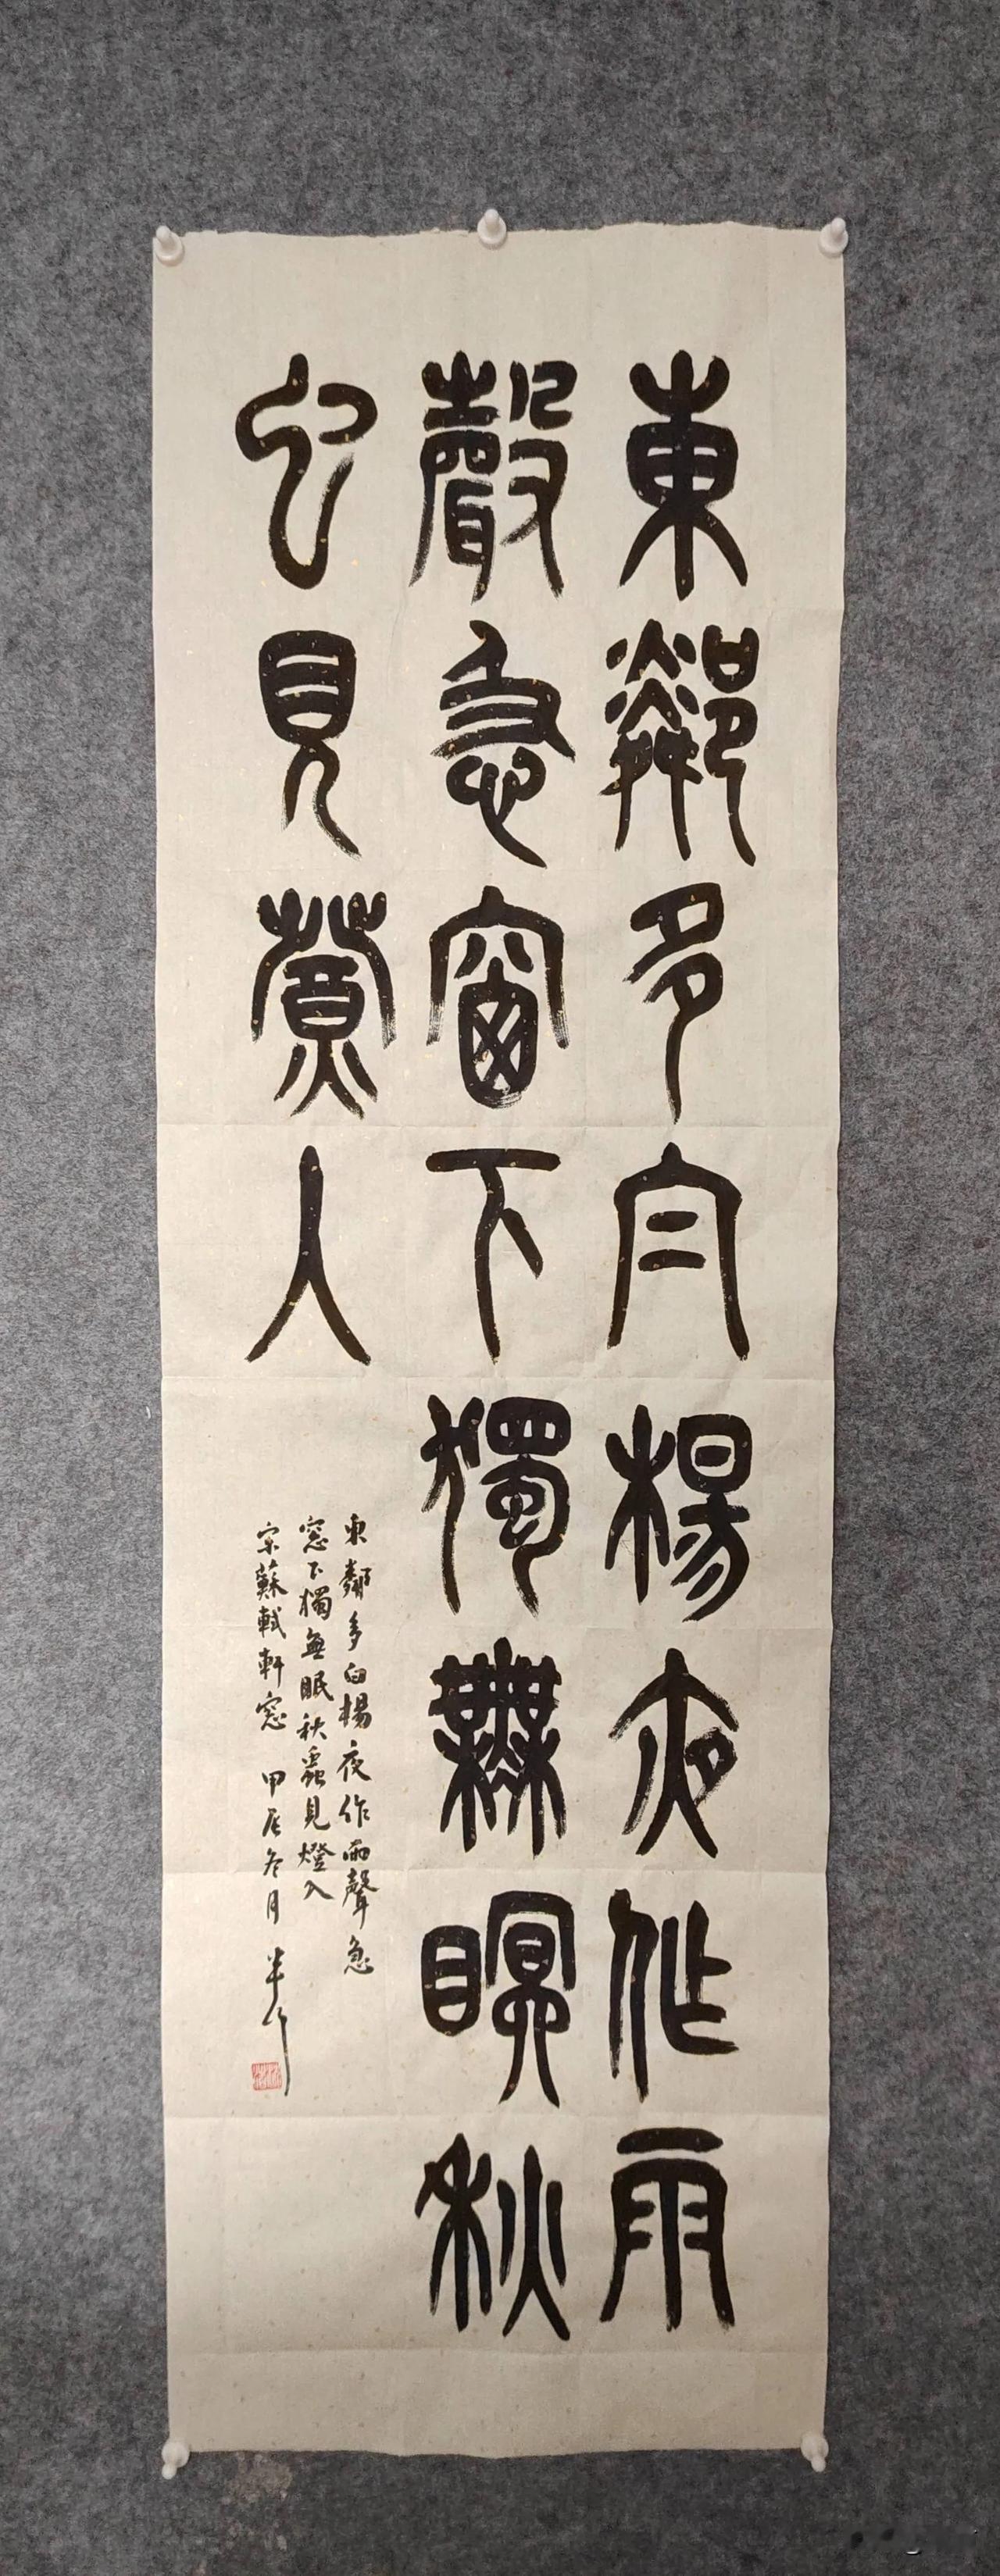 東鄰多白楊夜作雨
聲急窗下獨無瞑秋
虫見螢人
東鄰多白楊夜作雨聲急
窓下獨無眠秋蟲見燈入
宋蘇軾軒窓 甲辰冬月